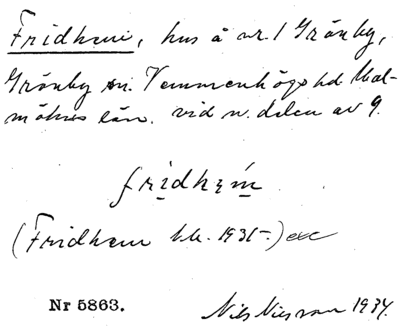 Fridhem, hus å nr. 1 Grönby,
Grönby sn. Vemmenhögs hd. Mal-
möhus län. vid n. delen av 9.
fridhem
(Fridhem t.k. 1935.) exc
Nr 5863.
Nils Nilsson 1934.